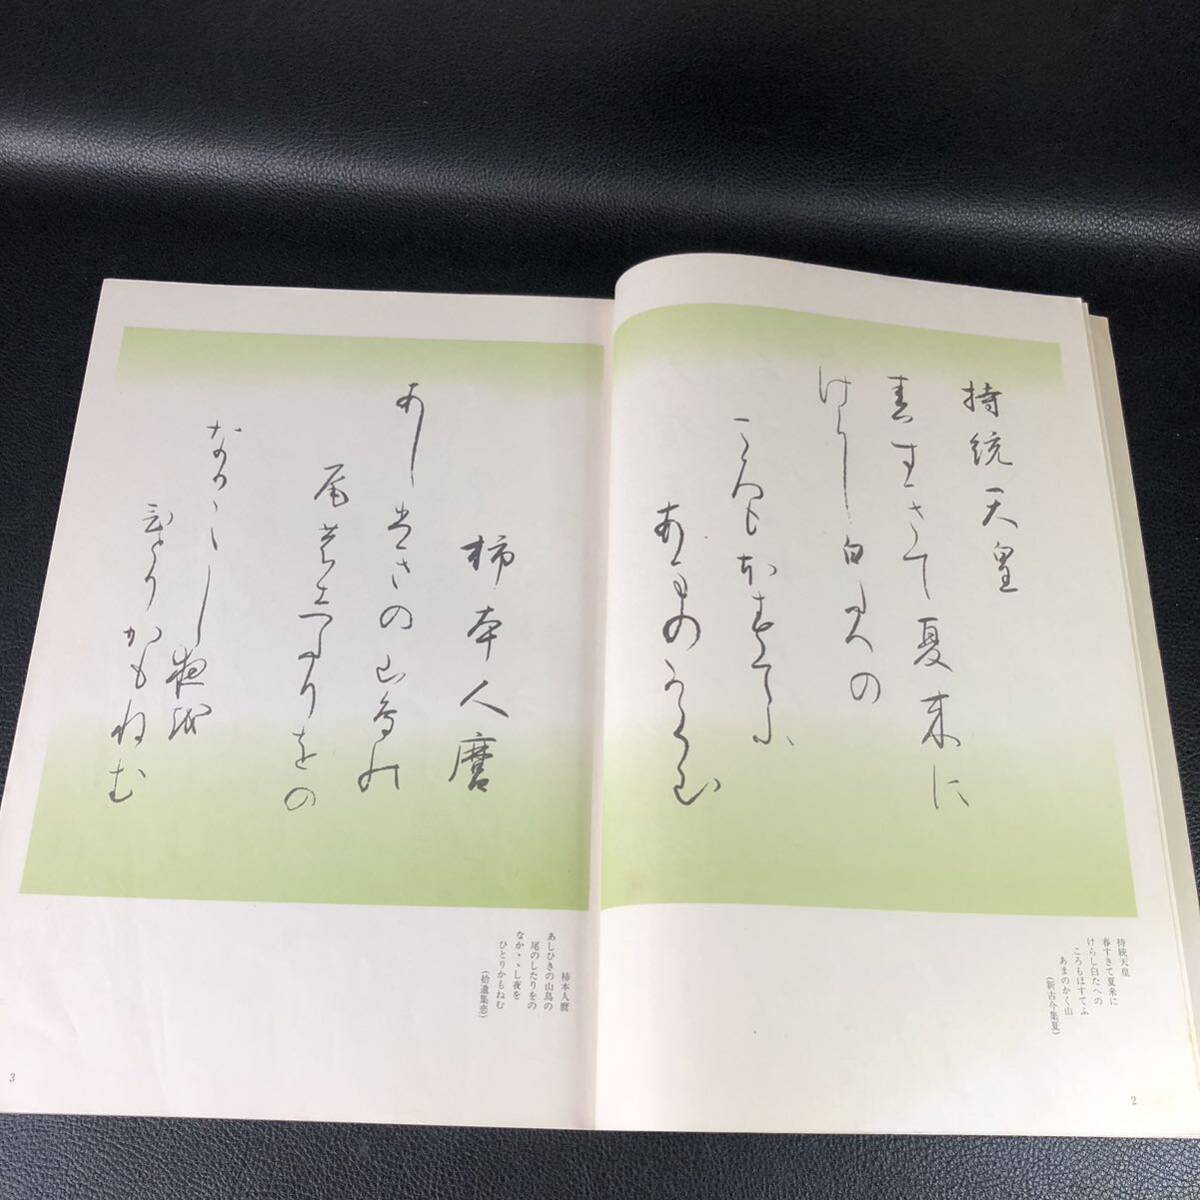 持統天皇
春すきて夏来に
けらし白たへの
ころもほすてふ
あまのかく山
持統天皇
春すきて夏来に
けらし白たへの
ころもほすてふ
あまのかく山
(新古今集夏)
2
柿本人麿
あしひきの山鳥の
尾のしたりをの
なかゝゝし夜を
ひとりかもねむ
柿本人麿
あしひきの山鳥の
尾のしたりをの
なかゝゝし夜を
ひとりかもねむ
(拾遺集恋)
3